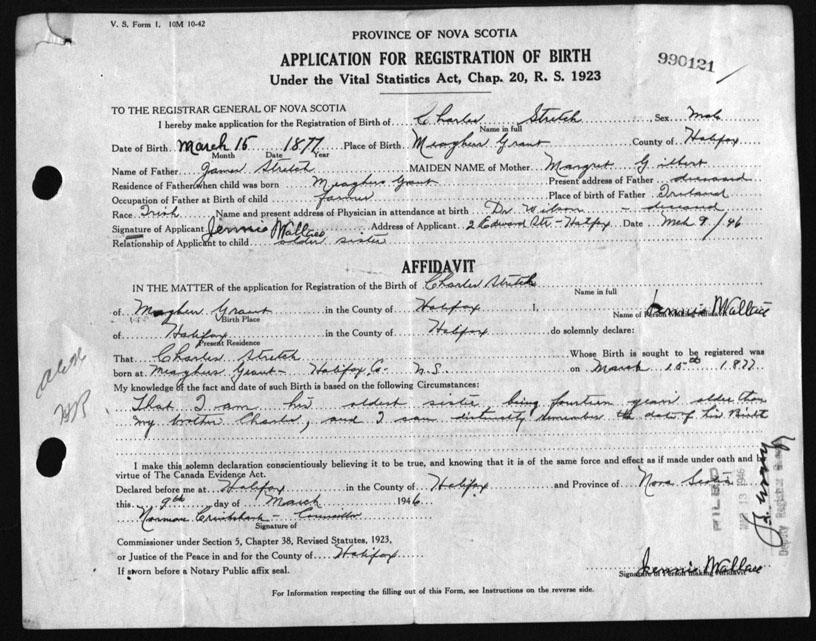 V. S. Form 1. 10M 10-42
PROVINCE OF NOVA SCOTIA
APPLICATION FOR REGISTRATION OF BIRTH
990121
Under the Vital Statistics Act, Chap. 20, R. S. 1923
TO THE REGISTRAR GENERAL OF NOVA SCOTIA
I hereby make application for the Registration of Birth of Charles Stretch Sex Male
Name in full
Date of Birth March 15 1877 Place of Birth Meagher Grant County of Halifax
Month Date Year
Name of Father James Stretch MAIDEN NAME of Mother Margret Gilbert
Residence of Father when child was born Meaghers Grant Present address of Father deceased
Occupation of Father at Birth of child farmer Place of birth of Father Ireland
Race Irish Name and present address of Physician in attendance at birth Dr Wilson - deceased
Signature of Applicant Jennie Wallace Address of Applicant 2 Edward Str - Halifax Date Mch 9/46
Relationship of Applicant to child sister
AFFIDAVIT
IN THE MATTER of the application for Registration of the Birth of Charles Stretch
Name in full
of Meagher Grant in the County of Halifax I, Jennie Wallace
Birth Place Name of Person making affidavit
of Halifax in the County of Halifax do solemnly declare:
Present Residence
That Charles Stretch Whose Birth is sought to be registered was
born at Meagher Grant - Halifax Co - N.S. on March 15th 1877
My knowledge of the fact and date of such Birth is based on the following Circumstances:
That I am his oldest sister being fourteen years older than
my brother Charles, and I can distinctly remember the date of his Birth
I make this solemn declaration conscientiously believing it to be true, and knowing that it is of the same force and effect as if made under oath and by
virtue of The Canada Evidence Act.
Declared before me at Halifax in the County of Halifax and Province of Nova Scotia
this 9th day of March 1946
Norman Cruikshank - Councillor
Signature of
Commissioner under Section 5, Chapter 38, Revised Statutes, 1923,
or Justice of the Peace in and for the County of Halifax
If sworn before a Notary Public affix seal.
Jennie Wallace
Signature of Person making Affidavit
For Information respecting the filling out of this Form, see Instructions on the reverse side.
FILED
MAR 13 1946
Deputy Registrar